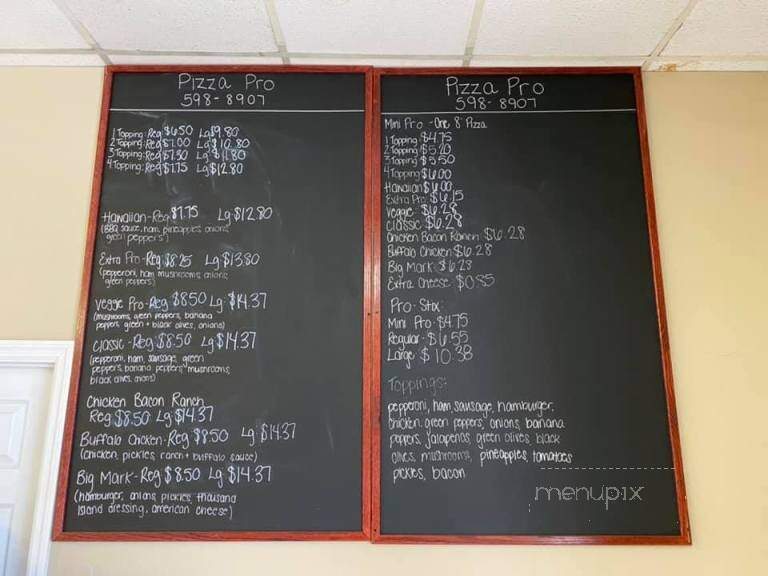 Pizza Pro
598-8907
1 Topping: Reg $6.50 Lg $9.80
2 Topping: Reg $7.00 Lg $10.80
3 Topping: Reg $7.50 Lg $11.80
4 Topping: Reg $7.75 Lg $12.80
Hawaiian-Reg $7.75 Lg $12.80
(BBQ sauce, ham, pineapples, onions
green peppers)
Extra Pro-Reg $8.25 Lg $13.80
(pepperoni, ham, mushrooms, onions,
green peppers)
Veggie Pro-Reg $8.50 Lg $14.37
(mushrooms, green peppers, banana
peppers, green + black olives, onions)
Classic-Reg $8.50 Lg $14.37
(pepperoni, ham, sausage, green
peppers, banana peppers, mushrooms,
black olives, onions)
Chicken Bacon Ranch
Reg $8.50 Lg $14.37
Buffalo Chicken-Reg $8.50 Lg $14.37
(chicken, pickles, ranch + buffalo sauce)
Big Mark-Reg $8.50 Lg $14.37
(hamburger, onions, pickles, thousand
island dressing, american cheese)
Pizza Pro
598-8907
Mini Pro - One 8 Pizza
1 Topping $4.75
2 Topping $5.20
3 Topping $5.50
4 Topping $6.00
Hawaiian $6.00
Extra Pro $6.15
Veggie $6.28
Classic $6.28
Chicken Bacon Ranch $6.28
Buffalo Chicken $6.28
Big Mark $6.28
Extra Cheese $0.85
Pro-Stix:
Mini Pro $4.75
Regular- $6.55
Large $10.38
Toppings:
pepperoni, ham, sausage, hamburger,
chicken, green peppers, onions, banana
peppers, jalapenos, green olives, black
olives, mushrooms, pineapples, tomatoes
pickles, bacon
menupix